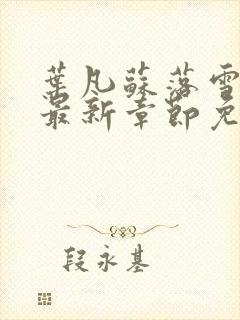 葉凡蘇落雪
最新章節免
段永基